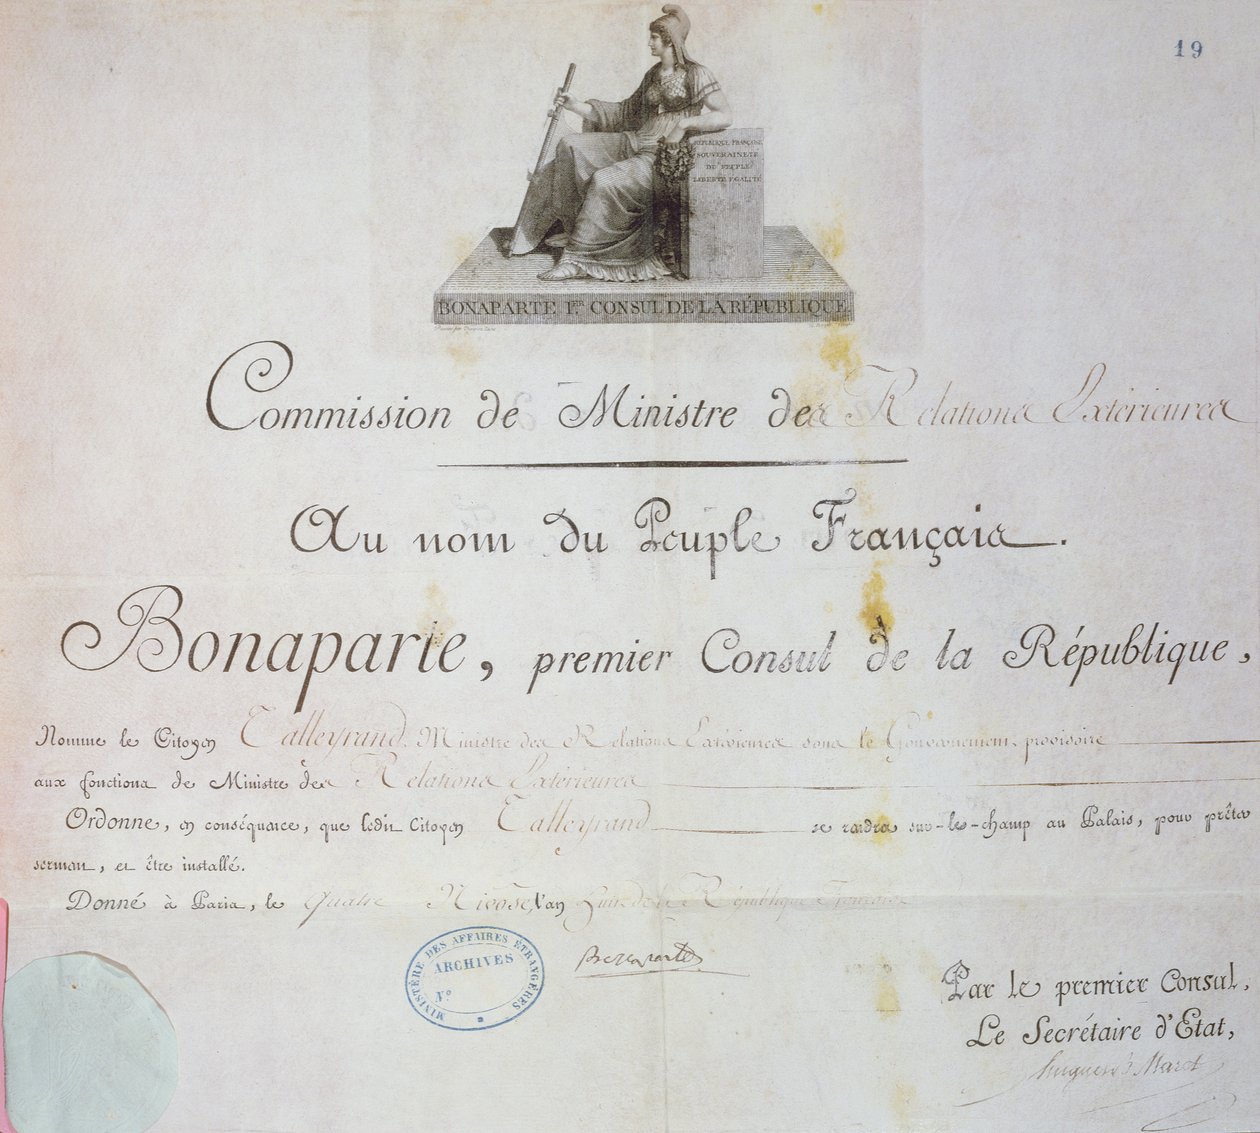 19
RÉPUBLIQUE FRANÇOISE
SOUVERAINETÉ
DU PEUPLE
LIBERTÉ EGALITÉ
BONAPARTE 1.ER CONSUL DE LA RÉPUBLIQUE.
Commission de Ministre des Relations Extérieures
Au nom du Peuple Français.
Bonaparte, premier Consul de la République,
Nomme le Citoyen Talleyrand, Ministre des Relations Extérieures sous le Gouvernement provisoire
aux fonctions de Ministre des Relations Extérieures
Ordonne, en conséquence, que ledit Citoyen Talleyrand se rendra sur-le-champ au Palais, pour prêter
serment, et être installé.
Donné à Paris, le quatre Nivôse, l'an huit de la République Française
MINISTÈRE DES AFFAIRES ÉTRANGÈRES
ARCHIVES
N°
Bonaparte
Par le premier Consul,
Le Secrétaire d'Etat,
Hugues B. Maret